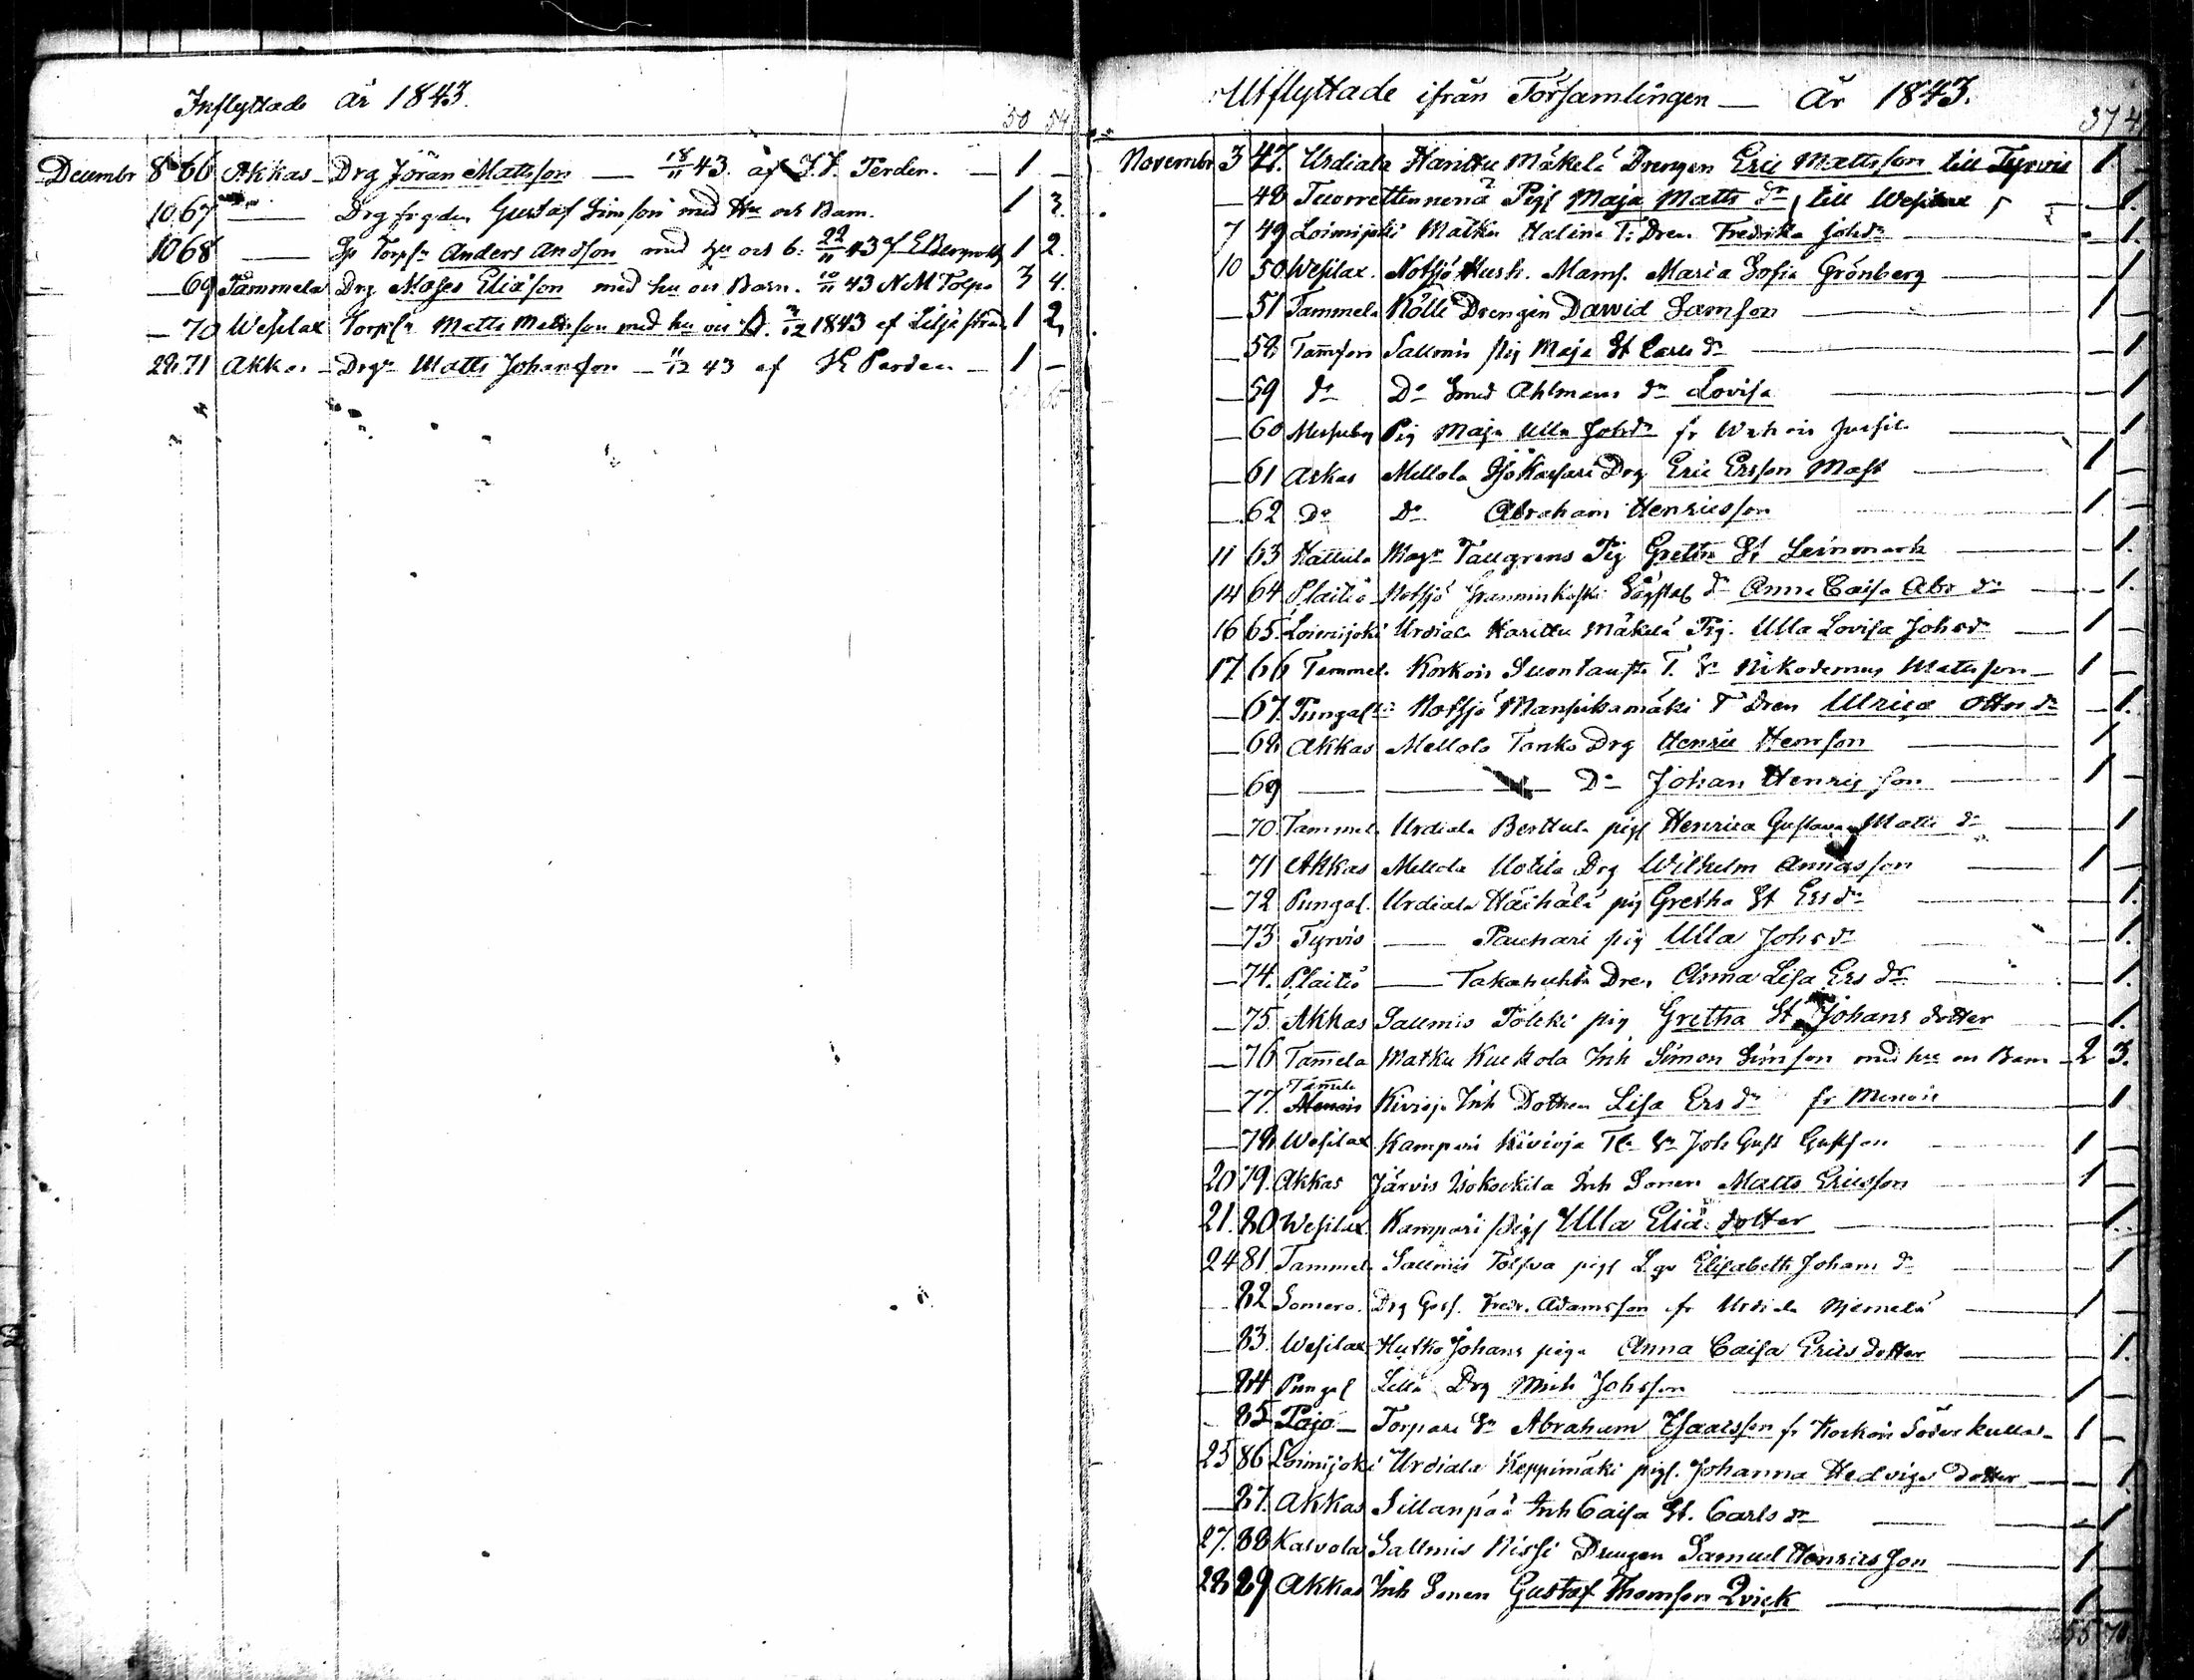 Inflyttade År 1843.
50 54
Decembr 8 66 Akkas - Drg Jöran Mattsson — 18/11 43. af F.F. Ferden. — 1 -
10 67 — Drg Gustaf Simson med Hu och Barn. 1 3.
10 68 — Sp Torpr Anders Andsson med hu och b: 22/11 43 1 2.
— 69 Tammela Drg Moses Eliasson med hu och Barn. 10/11 43 N M Tolpo 3 4.
— 70 Wesilax Torpr Matts Mattsson med hu och B. 2/12 1843 af Liljestrand 1 2
28 71 Akkas - Drgn Matts Johansson — 11/12 43 af — 1 -
Utflyttade ifrån Församlingen — År 1843.
37 4
Novembr 3 47. Urdiala Harittu Mäkelä Drengen Eric Mattsson till Tyrvis 1 -
— 48 Pigs Maja Matts dr till Wesilax - 1.
7 49 Loimijoki Matku Halina T: Dren Fredrika Johdr - 1.
10 50 Wesilax. Notsjö Hush. Mams. Maria Sofia Grönberg - 1.
— 51 Tammela Kölli Drengen Dawid Samson 1 -
— 58 Sallmis pig Maja St Carls dr - 1
— 59 do Do Smed Ahlmans dr Lovisa - 1
— 60 Messuby Pig Maja Ulla Johdr fr - 1
— 61 Akkas Mellola Drg Eric Ersson Mast 1 -
— 62 Do Do Abraham Henricsson 1 -
11 63 Kallula Magr Tallgrens Pig Greta St Leinmark - 1.
14 64 P.laitio Notsjö dr Anna Caisa Abr dr - 1.
16 65. Loimijoki Urdiala Harittu Mäkelä Pig. Ulla Lovisa Johsdr - 1
17 66 Tammel. Korkois T. Sn Nikodemus Mattsson 1 -
— 67. Pungal Notsjö Mansikamäki T dren Ulrica Otto dr - 1.
— 68 Akkas Mellola Tanko Drg Henric Henrson 1 -
— 69 — Do Johan Henricsson 1 -
— 70. Tammel. Urdiala Berttula pigs Henrica Gustava Matts dr - 1
— 71 Akkas Mellola Uotila Drg Wilhelm Annasson 1 -
— 72 Pungal. Urdiala Häihälä pig Gretha St Ersdr - 1.
— 73 Tyrvis — Pauhari pig Ulla Johsdr - 1.
— 74. P.laitio — Takahuhta Dren Anna Lisa Ers dr - 1.
— 75 Akkas Sallmis Pölcki pig Gretha St Johans dotter - 1.
— 76 Tamela Matku Kuckola Inh Simon Simson med hu och Barn 2 3.
— 77. Tamela Kivioja Inh Dottren Lisa Ers dr fr Menois - 1
— 78 Wesilax Kampari Kivioja Sn Joh Gust Gustson 1 -
20 79. Akkas Järvis Isokockila Inh Sonen Matts Ericsson 1 -
21. 80 Wesilax. Kampari pigs Ulla Eliæ dotter - 1.
24 81. Tammel. Sallmis Tölpva pigs Elisabeth Johans dr - 1.
— 82 Somero. Drg Gust. Fredr. Adamsson fr Urdiala Njemelä 1 -
— 83. Wesilax Hutko Johans piga Anna Caisa Erics dotter - 1.
— 84 Pungal Drg Mich Johsson 1 -
— 85 Pöjö — Torpare Sn Abraham Isaacsson fr Korkois Söderkulla 1 -
25 86 Loimijoki Urdiala Keppimäki pigs. Johanna Hedvigs dotter - 1
— 87. Akkas Sillanpää Inh Caisa St. Carls dr - 1
27. 88 Kalvola Sallmis Nissi Drengen Samuel Henricsson 1 -
28 89 Akkas Inh Sonen Gustaf Thomson Qvick 1 -
55 70